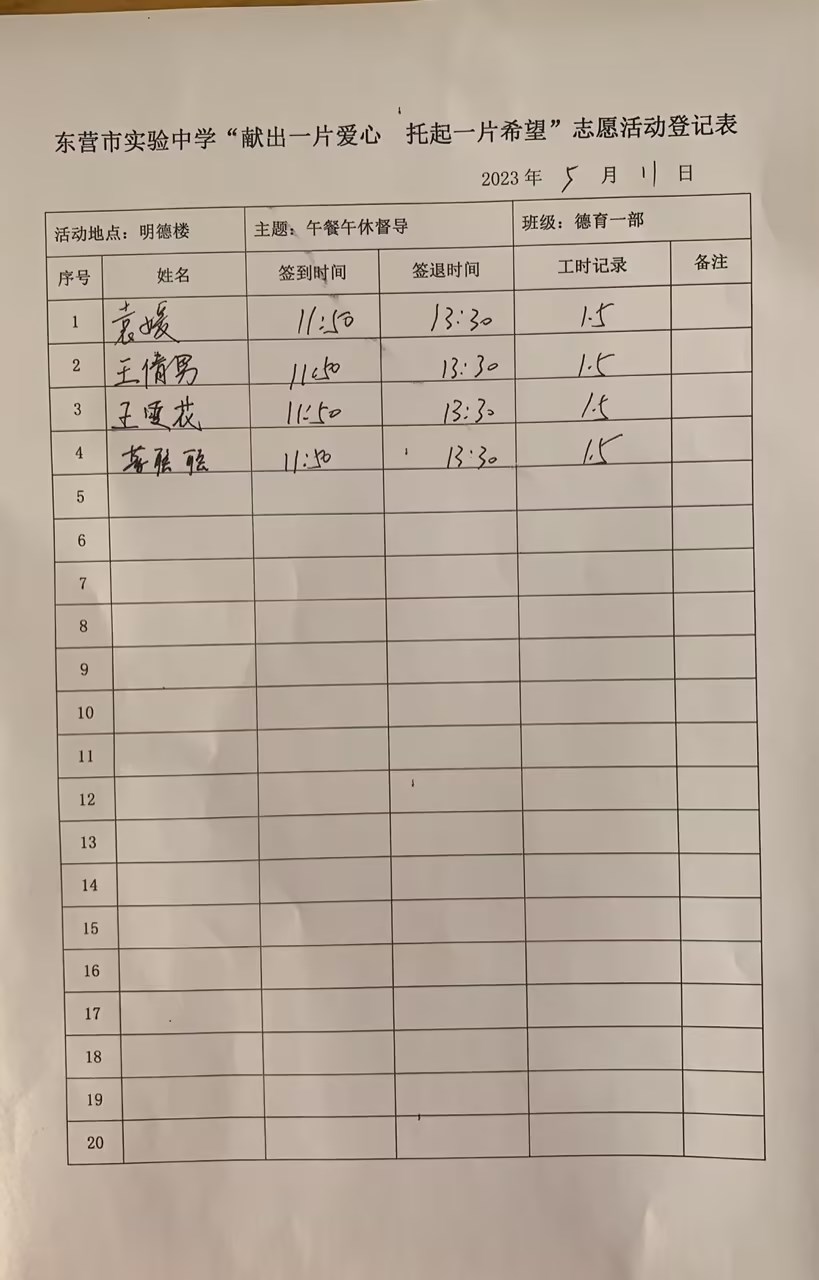 东营市实验中学“献出一片爱心 托起一片希望”志愿活动登记表
2023 年 5 月 11 日
活动地点：明德楼 主题：午餐午休督导 班级：德育一部
序号 姓名 签到时间 签退时间 工时记录 备注
1 袁媛 11:50 13:30 1.5
2 王倩男 11:50 13:30 1.5
3 王 花 11:50 13:30 1.5
4 聪聪 11:50 13:30 1.5
5
6
7
8
9
10
11
12
13
14
15
16
17
18
19
20